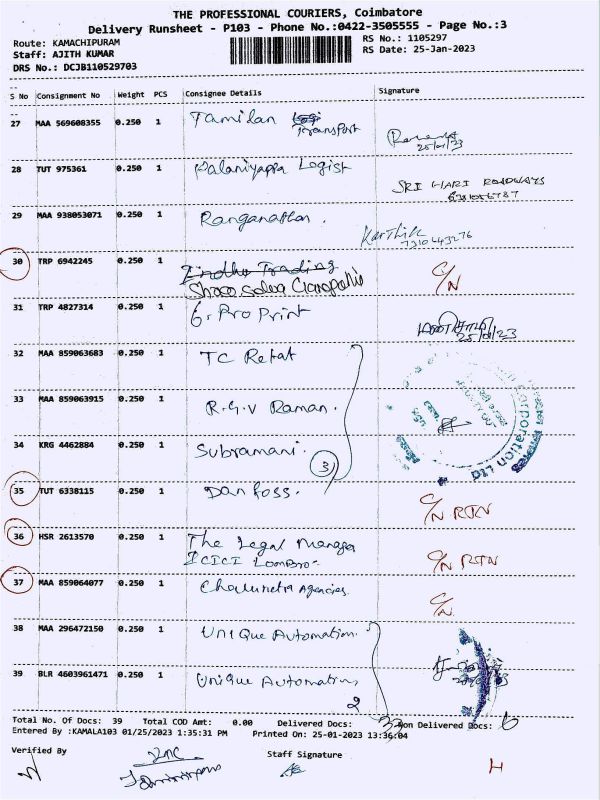 THE PROFESSIONAL COURIERS, Coimbatore
Delivery Runsheet - P103 - Phone No.:0422-3505555 - Page No.:3
Route: KAMACHIPURAM
RS No.: 1105297
Staff: AJITH KUMAR
RS Date: 25-Jan-2023
DRS No.: DCJB110529703
S No Consignment No Weight PCS Consignee Details Signature
27 MAA 569608355 0.250 1 Tamilan
Transport
25/01/23
28 TUT 975361 0.250 1 Palaniyappa Logist
SRI HARI ROADWAYS
29 MAA 938053071 0.250 1 Ranganathan.
Karthik
30 TRP 6942245 0.250 1 C/N
31 TRP 4827314 0.250 1 6. Pro Print
25/01/23
32 MAA 859063683 0.250 1 TC
33 MAA 859063915 0.250 1 R.G.V Raman.
34 KRG 4462884 0.250 1 Subramani.
3
Corporation Ltd
35 TUT 6338115 0.250 1 Danfoss. C/N RTN
36 HSR 2613570 0.250 1 The Legal Manager C/N RTN
ICICI
37 MAA 859064077 0.250 1 Agencies C/N
38 MAA 296472150 0.250 1 Unique Automation.
39 BLR 4603961471 0.250 1 Unique Automation,
2
Total No. Of Docs: 39 Total COD Amt: 0.00 Delivered Docs: 33 Non Delivered Docs: 6
Entered By :KAMALA103 01/25/2023 1:35:31 PM Printed On: 25-01-2023 13:36:04
Verified By Staff Signature